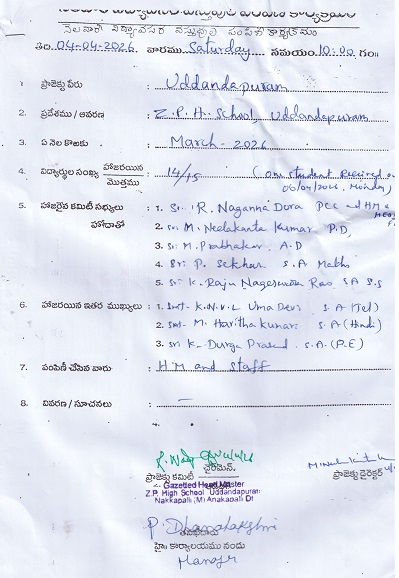 నెలవారీ విద్యావసర వస్తువుల పంపిణీ కార్యక్రమం
తేది. 04-04-2026 వారము Saturday సమయం. 10:00 గం॥
1. ప్రాజెక్టు పేరు : Uddandapuram
2. ప్రదేశము / ఆవరణ : Z.P.H. School, Uddandapuram
3. ఏ నెల కొఱకు : March-2026
4. విద్యార్థుల సంఖ్య హాజరయిన / మొత్తము : 14/15 (One student Received on
06/04/2026, Monday)
5. హాజరైన కమిటీ సభ్యులు : 1. Sri R. Naganna Dora PCC and HM &
హోదాతో 2. Sri M. Neelakanta Kumar P.D,
3. Sri M. Prabhakar A.D
4. Sri P. Sekhar S.A Maths
5. Sri K. Raju Nageswara Rao SA S.S
6. హాజరయిన ఇతర ముఖ్యులు : 1. Smt. K.N.V.L Uma Devi S.A (Tel)
2. Smt. M. Haritha Kumari S.A (Hindi)
3. Sri K. Durga Prasad S.A. (P.E)
7. పంపిణీ చేసిన వారు : HM and Staff
8. వివరణ / సూచనలు : —
ఛైర్మెన్.
ప్రాజెక్టు కమిటీ
ప్రాజెక్టు డైరెక్టర్
Gazetted Head Master
Z.P. High School Uddandapuram
Nakkapalli (M) Anakapalli Dt
P. Dhanalakshmi
హై. కార్యాలయము నందు
Manager